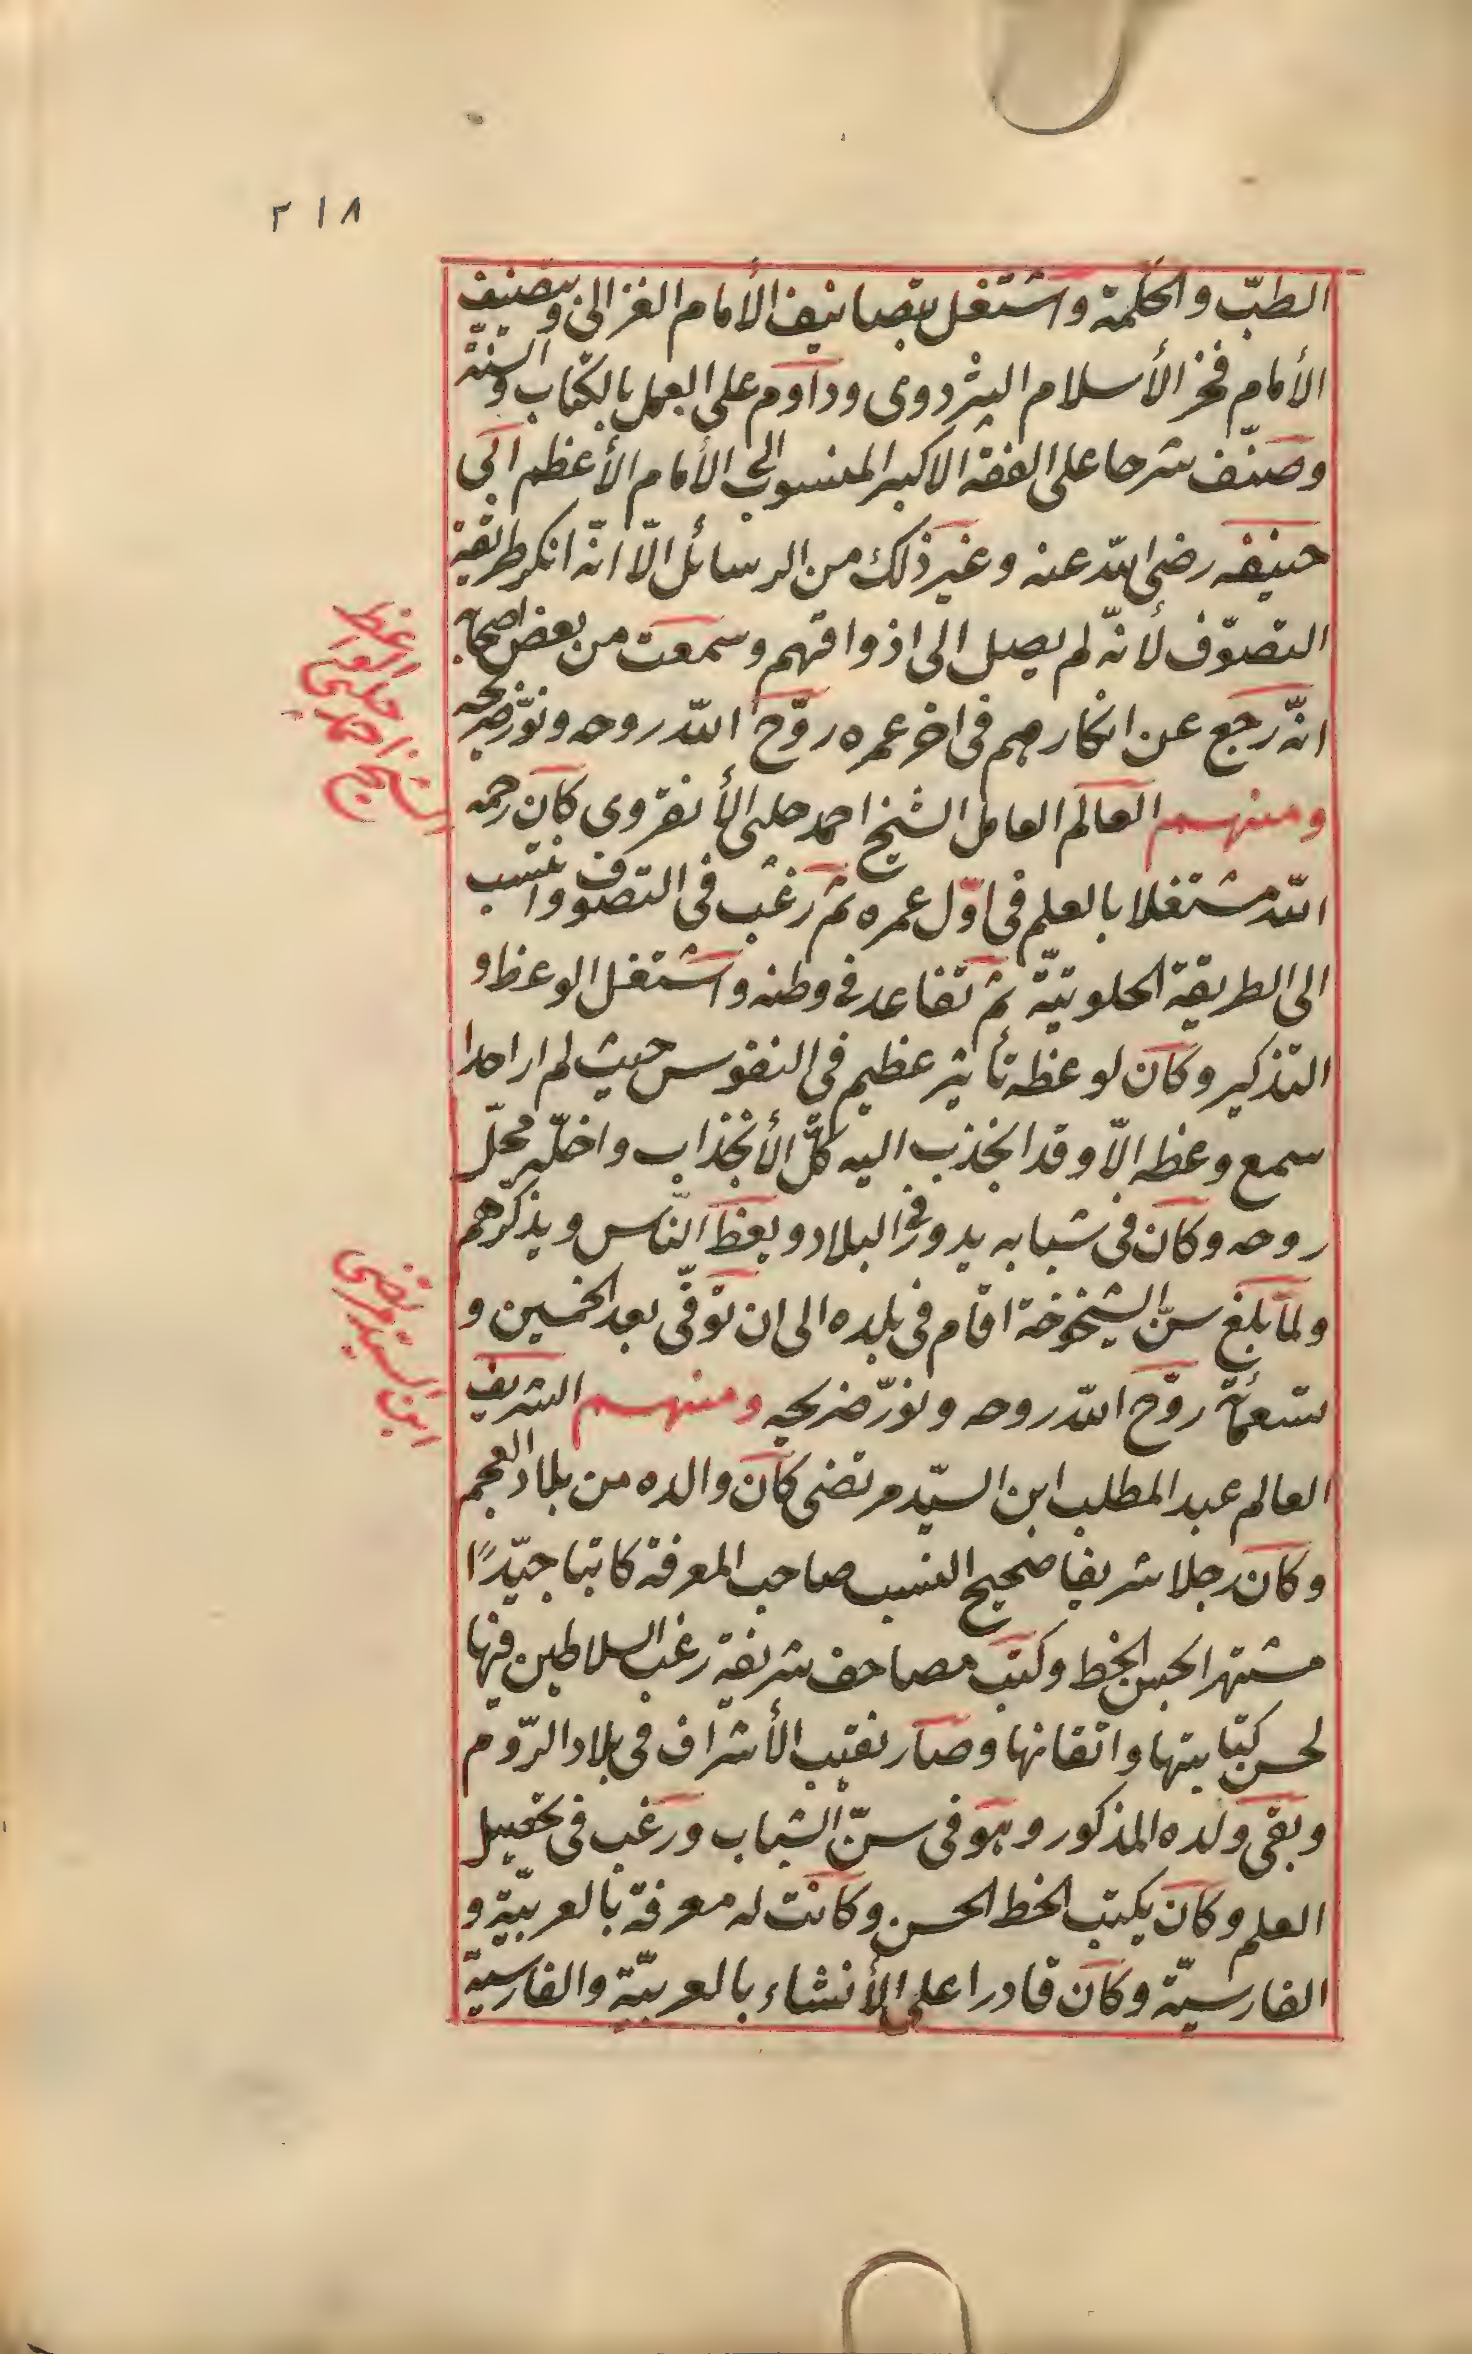 ٢١٨
الطبّ والحكمة واشتغل بتصانيف الأمام الغزالى وبتصنيف
الأمام فخر الأسلام البزدوى وداوم على العمل بالكتاب والسنّة
وصنّف شرحا على الفقه الاكبر المنسوب الى الأمام الأعظم ابى
حنيفه رضى الله عنه وغير ذلك من الرسائل الّا انّه انكر طريقة
التصوّف لأنّه لم يصل الى اذواقهم وسمعت من بعض اصحابه
انّه رجع عن انكارهم فى اخر عمره روّح الله روحه ونوّر ضريحه
ومنهم العالم العامل الشيخ احمد جلبى الأنقروى كان رحمه
الله مشتغلا بالعلم فى اوّل عمره ثم رغب فى التصوف وانتسب
الى الطريقة الخلوتيّة ثم تقاعد فى وطنه واشتغل الوعظ و
التذكير وكان لوعظه تأثير عظيم فى النفوس حيث لم ار احدا
سمع وعظه الّا وقد انجذب اليه كلّ الأنجذاب واخلّه محلّ
روحه وكان فى شبابه يدور فى البلاد ويعظ النّاس ويذكّرهم
ولمّا بلغ سنّ الشيخوخة اقام فى بلده الى ان توفّى بعد الخمسين و
تسعمأة روّح الله روحه ونوّر ضريحه ومنهم الشريف
العالم عبد المطلب ابن السيّد مرتضى كان والده من بلاد العجم
وكان رجلا شريفا صحيح النسب صاحب المعرفة كاتبا جيّدًا
مشتهرا بحسن الخط وكتب مصاحف شريفة رغب السلاطين فيها
لحسن كتابتها واتقانها وصار نقيب الأشراف فى بلاد الرّوم
وبقى ولده المذكور وهو فى سنّ الشباب ورغب فى تحصيل
العلم وكان يكتب الخط الحسن وكانت له معرفة بالعربيّة و
الفارسيّة وكان قادرا على الأنشاء بالعربيّة والفارسيّة
الشيخ احمد جلبى الواعظ
ابن السيد مرتضى